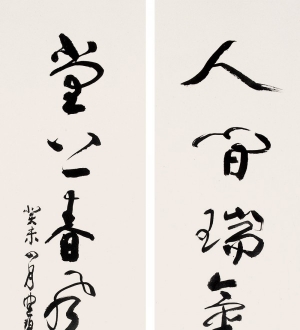 人間瑞氣
堂上春風
癸未四月